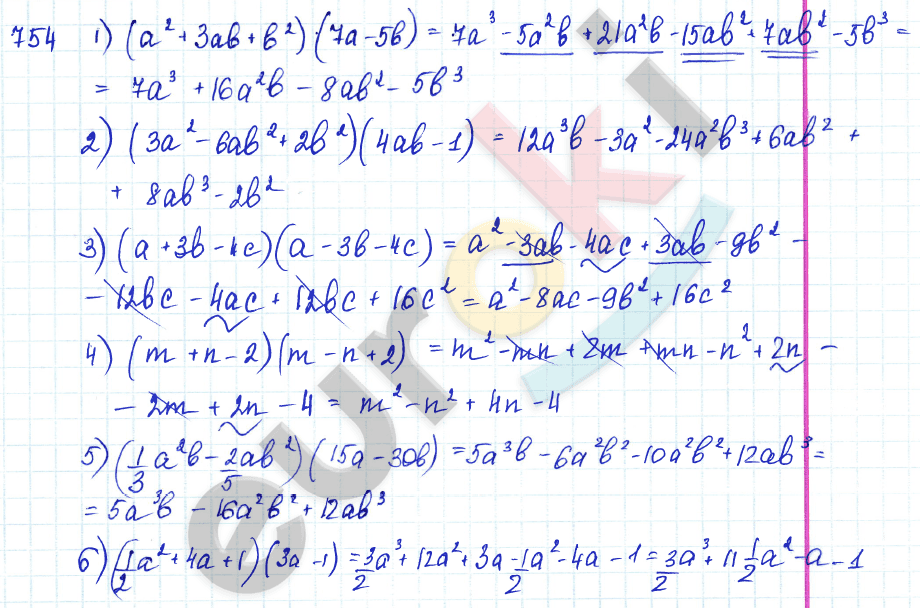 754 1) (a² + 3ab + b²)·(7a - 5b) = 7a³ - 5a²b + 21a²b - 15ab² + 7ab² - 5b³ =
= 7a³ + 16a²b - 8ab² - 5b³
2) (3a² - 6ab² + 2b²)(4ab - 1) = 12a³b - 3a² - 24a²b³ + 6ab² +
+ 8ab³ - 2b²
3) (a + 3b - 4c)(a - 3b - 4c) = a² - 3ab - 4ac + 3ab - 9b² -
- 12bc - 4ac + 12bc + 16c² = a² - 8ac - 9b² + 16c²
4) (m + n - 2)(m - n + 2) = m² - mn + 2m + mn - n² + 2n -
- 2m + 2n - 4 = m² - n² + 4n - 4
5) (1/3 a²b - 2/5 ab²)(15a - 30b) = 5a³b - 6a²b² - 10a²b² + 12ab³ =
= 5a³b - 16a²b² + 12ab³
6) (1/2 a² + 4a + 1)(3a - 1) = 3/2 a³ + 12a² + 3a - 1/2 a² - 4a - 1 = 3/2 a³ + 11 1/2 a² - a - 1
euroki